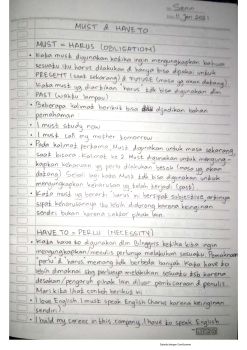 Senin
11 Jan 2021
MUST & HAVE TO
MUST = HARUS (OBLIGATION)
• Kata must digunakan ketika ingin mengungkapkan bahwa
sesuatu itu harus dilakukan & hanya bisa dipakai untuk
PRESENT (saat sekarang) & FUTURE (masa yg akan datang).
Kata must yg diartikan 'harus' tdk bisa digunakan dlm
PAST (waktu lampau)
• Beberapa kalimat berikut bisa dijadikan bahan
pemahaman
• I must study now
• I must call my mother tomorrow
• Pada kalimat pertama Must digunakan untuk masa sekarang,
saat bicara. Kalimat ke 2 Must digunakan untuk mengung-
kapkan keharusan yg perlu dilakukan besok (masa yg akan
datang). Selain lagi kata Must tdk bisa digunakan untuk
mengungkapkan keharusan yg telah terjadi (past)
• Kata must yg berarti 'harus' ini bersifat subjective, artinya
sifat keharusannya itu lebih didorong karena keinginan
sendiri bukan karena faktor pihak lain.
HAVE TO = PERLU (NECESSITY)
• Kata have to digunakan dlm Bhs. Inggris ketika kita ingin
mengungkapkan/menulis perlunya melakukan sesuatu. Pemahaman
'perlu' & 'harus' memang tdk berbeda banyak. Kata have to
lebih dimaknai sbg perlunya melakukan sesuatu tsb karena
desakan/pengaruh pihak lain diluar pembicaraan & penulis.
Mari kita lihat contoh berikut ini
• I love English I must speak English (harus karena keinginan
sendiri).
• I build my career in this company, I have to speak English